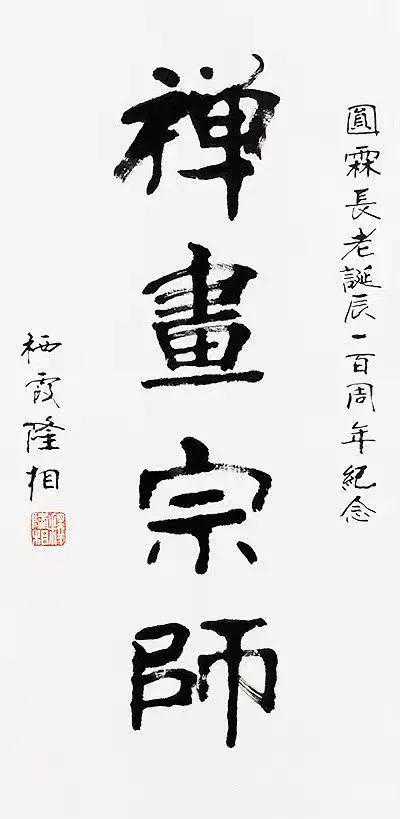 圓霖長老誕辰一百周年紀念
禅畫宗師
栖霞隆相